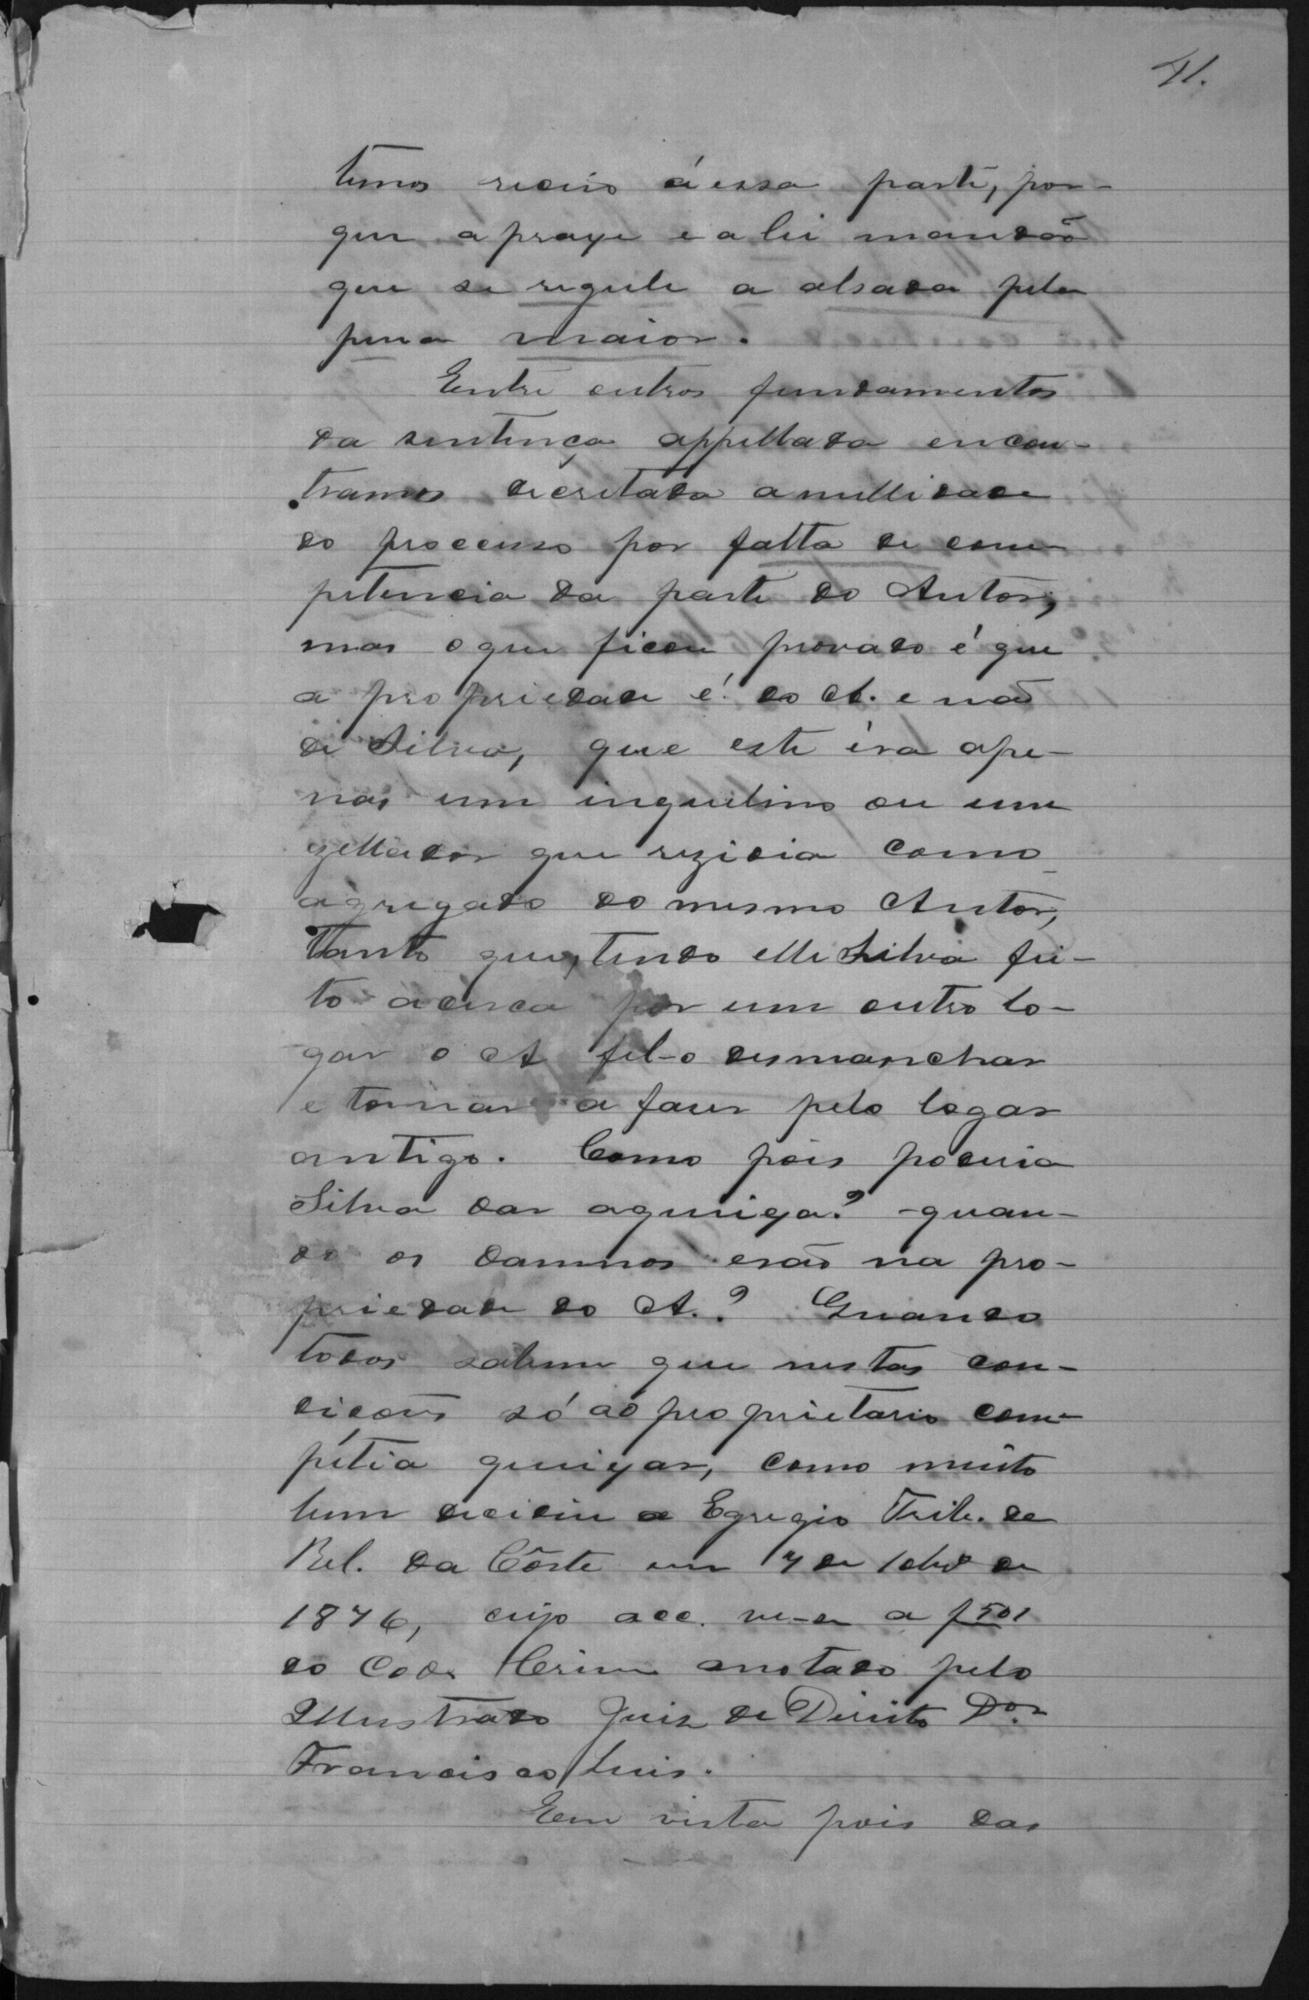 41.
temos receio á essa parte, por-
que a praxe e a lei mandão
que se regule a alsada pela
pena maior.
Entre outros fundamentos
da sentença appellada encon-
tramos decretada a nullidade
do processo por falta de com-
petencia da parte do Autor,
mas o que ficou provado é que
a propriedade é do A. e não
de Silva, que este éra ape-
nas um inquelino ou um
zellador que rezidia como
agregado do mesmo Autor,
Tanto que, tendo elle Silva fei-
to a cerca por um outro lo-
gar o A fel-o desmanchar
e tornar a fazer pelo logar
antigo. Como pois poderia
Silva dar a queixa? -quan-
do os damnos erão na pro-
priedade do A.? Quando
todos sabem que nestas con-
dicoes só ao proprietario com-
petia queixar, como muito
bem decidiu o Egregio Trib. de
Rel. da Côrte em 7 de de
1876, cujo acc. ve-se a f 501
do Cod. Crim anotado pelo
Illustrado Juiz de Direito Dor.
Francisco Luis.
Em vista pois das